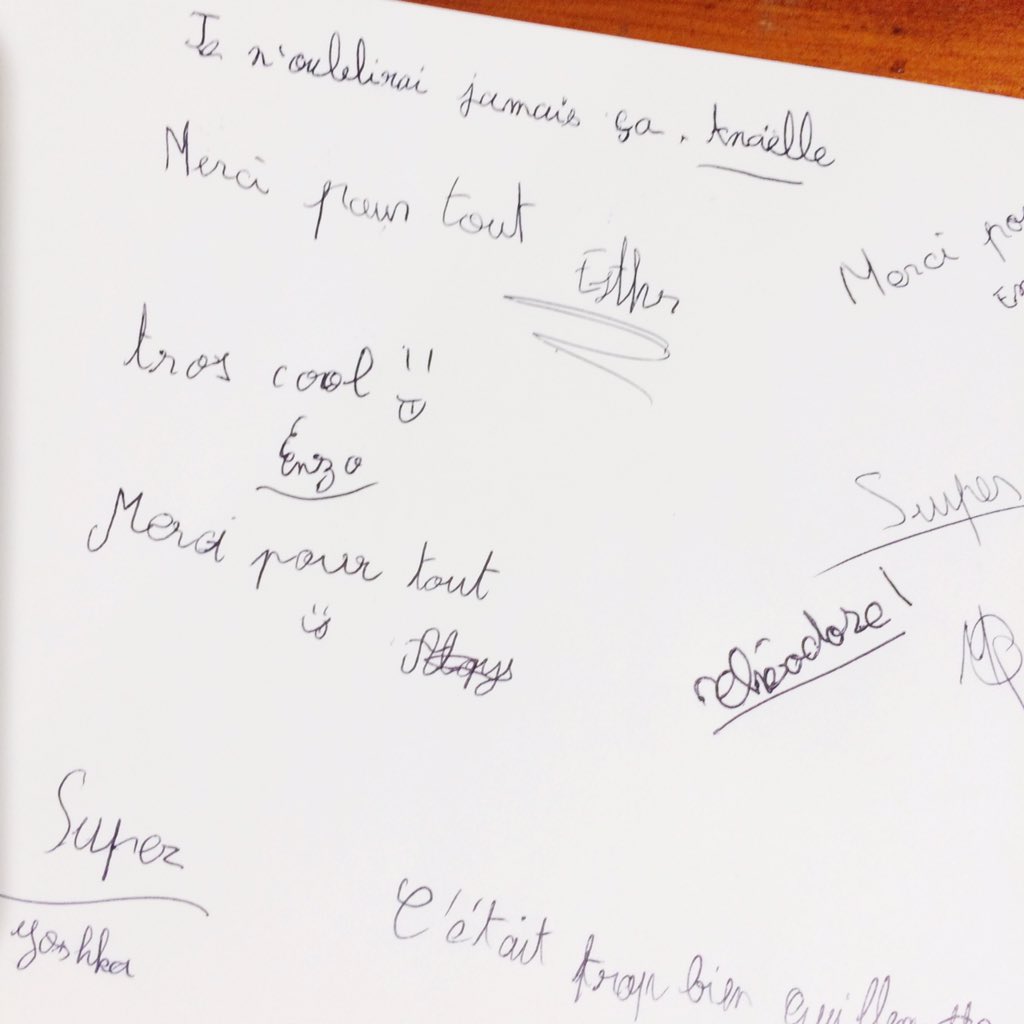 Je n'oulelirai jamais ça. Anaëlle
Merci pour tout
Esther
Merci
tros cool !!
Enzo
Merci pour tout
Super
théodore !
Super
yoshka
C'était trop bien